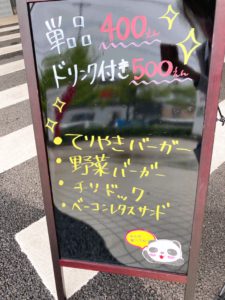 単品 400えん
ドリンク付き 500えん
・てりやきバーガー
・野菜バーガー
・チリドック
・ベーコンレタスサンド